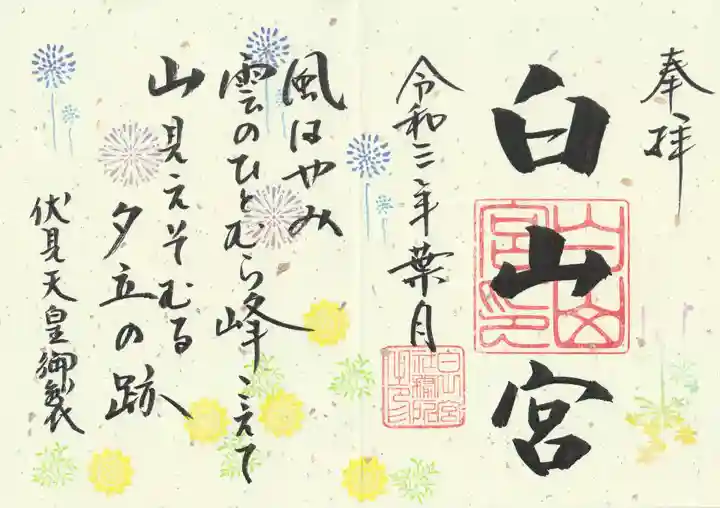 奉拝
白山宮
白山宮印
令和三年葉月
風はやみ
雲のひとむら峰こえて
山見えそむる
夕立の跡
伏見天皇御製